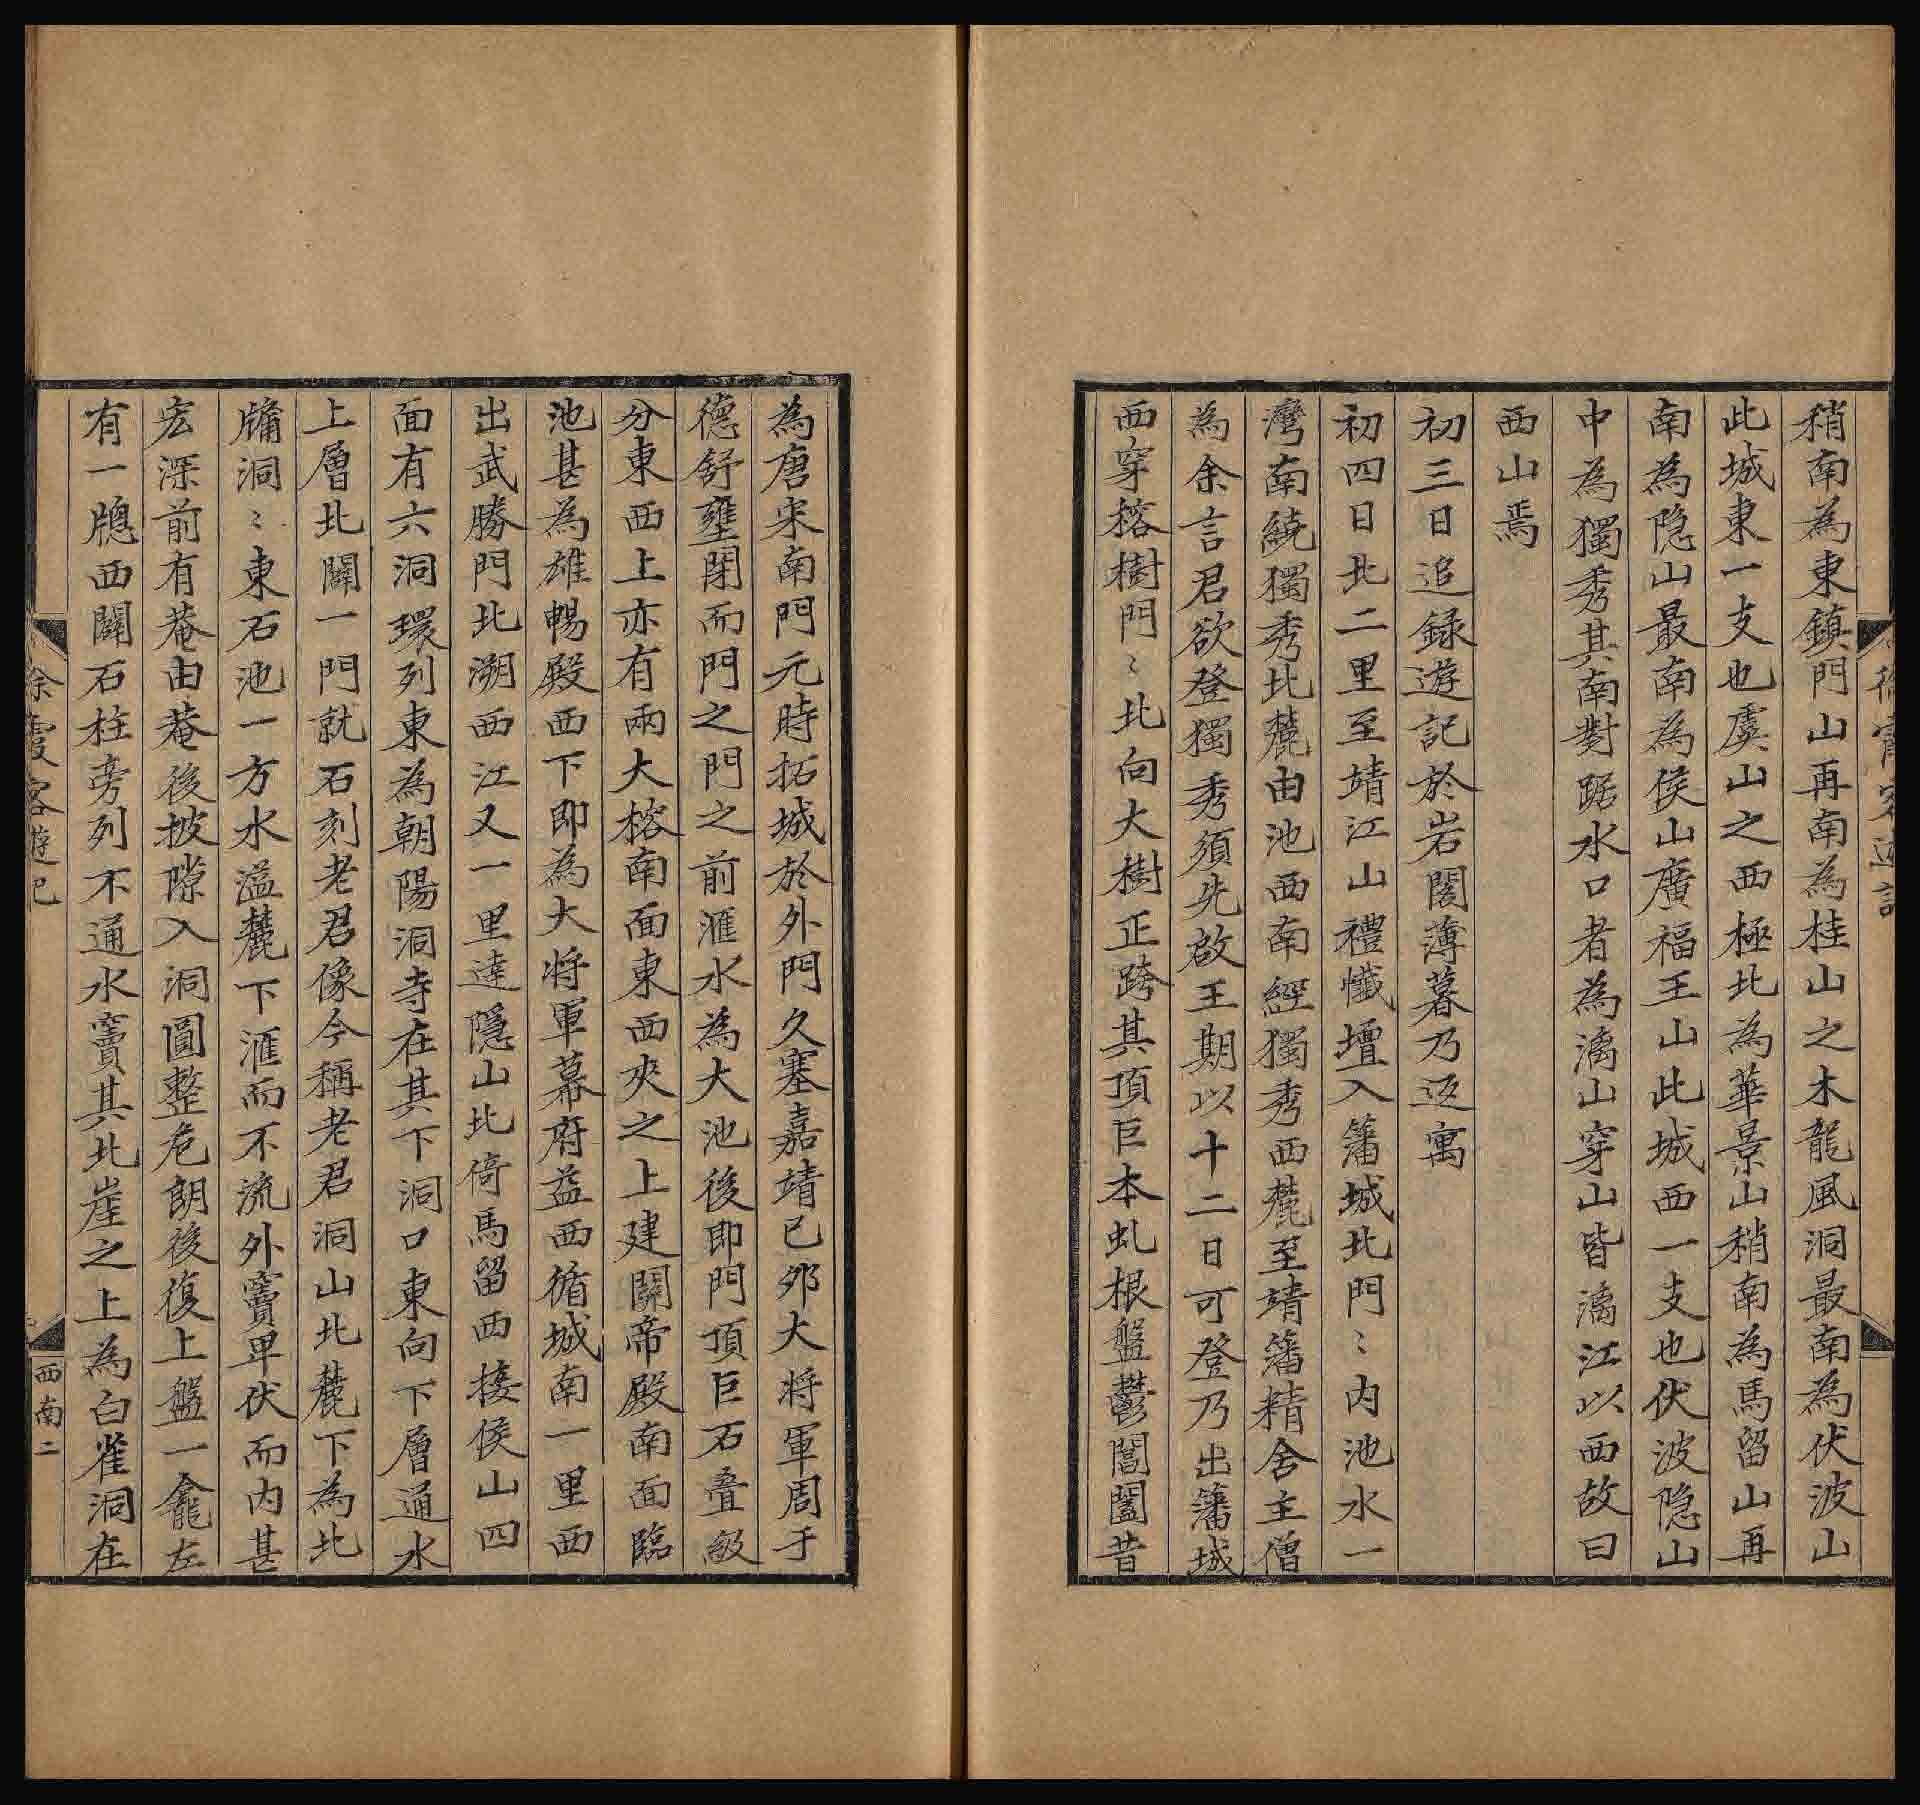 稍南為東鎮門山再南為桂山之木龍風洞最南為伏波山
此城東一支也虞山之西極北為華景山稍南為馬留山再
南為隱山最南為侯山廣福王山此城西一支也伏波隱山
中為獨秀其南對踞水口者為漓山穿山皆漓江以西故曰
西山焉
初三日追録遊記於岩閣薄暮乃返寓
初四日北二里至靖江山禮懺壇入籓城北門〻内池水一
灣南繞獨秀北麓由池西南經獨秀西麓至靖籓精舍主僧
為余言君欲登獨秀須先啟王期以十二日可登乃出籓城
西穿榕樹門〻北向大樹正跨其頂巨本虬根盤鬱閭闔昔
為唐宋南門元時拓城於外門久塞嘉靖已夘大將軍周于
德舒壅閉而門之門之前滙水為大池後即門頂巨石疊級
分東西上亦有兩大榕南面東西夾之上建關帝殿南面臨
池甚為雄暢殿西下即為大將軍幕府益西循城南一里西
出武勝門北溯西江又一里達隱山北倚馬留西接侯山四
面有六洞環列東為朝陽洞寺在其下洞口東向下層通水
上層北闢一門就石刻老君像今稱老君洞山北麓下為北
牖洞〻東石池一方水溢麓下滙而不流外竇卑伏而内甚
宏深前有菴由菴後披隙入洞圓整危朗後復上盤一龕左
有一牕西闢石柱旁列不通水竇其北崖之上為白雀洞在
徐霞客遊記
西南二